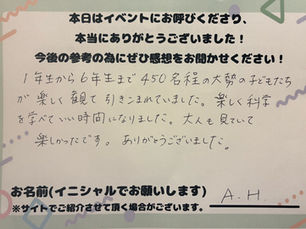 本日はイベントにお呼びくださり、
本当にありがとうございました！
今後の参考の為にぜひ感想をお聞かせください！
1年生から6年生まで450名程の大勢の子どもたち
が楽しく観て引きこまれていました。楽しく科学
を学べていい時間になりました。大人も見ていて
楽しかったです。ありがとうございました。
お名前(イニシャルでお願いします) A.H
※サイトでご紹介させて頂く場合がございます。